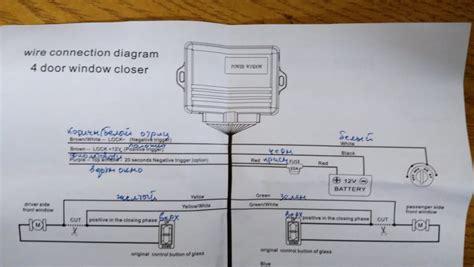 wire connection diagram
4 door window closer
POWER WINDOW
Brown/White – LOCK- (Negative trigger)
Brown – LOCK +12V
Purple 20 seconds Negative trigger (option)
верх окно
белый
White
черн
Black
красн
Red
FUSE
Red
12V
BATTERY
желтый
Yellow
Green
зелен
driver side
front window
Yellow/White
Green/White
passenger side
front window
CUT
positive in the closing phase
верх
верх
positive in the closing phase
CUT
M
M
original control button of glass
original control button of glass
Blue